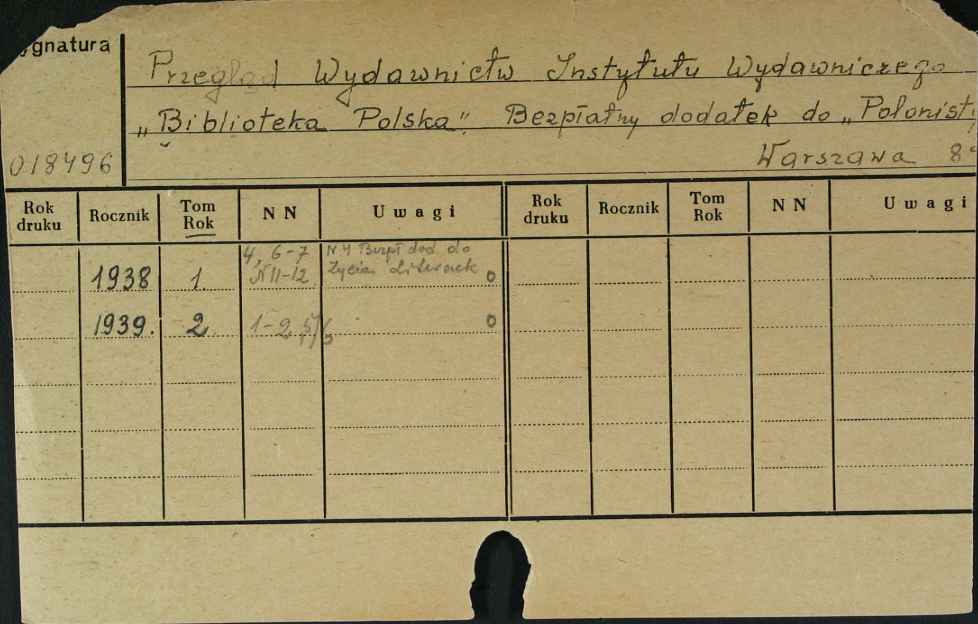 ygnatura
Przegląd Wydawnictw Instytutu Wydawniczego
„Biblioteka Polska". Bezpłatny dodatek do „Polonist
018496
Warszawa 8°
Rok druku Rocznik Tom Rok NN Uwagi Rok druku Rocznik Tom Rok NN Uwagi
4, 6-7 N 4 Bezpł dod. do
1938 1 N 11-12 Życia Literack 0
1939. 2 1-2 0